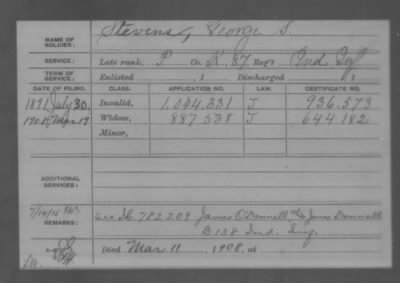 NAME OF SOLDIER: Stevens, George S.
SERVICE: Late rank, P Co. K, 87 Reg't Ind. Inf.
TERM OF SERVICE: Enlisted , 1 Discharged , 1
DATE OF FILING. CLASS. APPLICATION NO. LAW. CERTIFICATE NO.
1891, July 30. Invalid, 1,044,331 J 936.573
1908, Mar. 19 Widow, 887 538 J 644 182
Minor,
ADDITIONAL SERVICES:
7/14/15
REMARKS: 782209 James O'Donnell James Donnell
B 138 Ind. Inf.
Died Mar 11, 1908, at